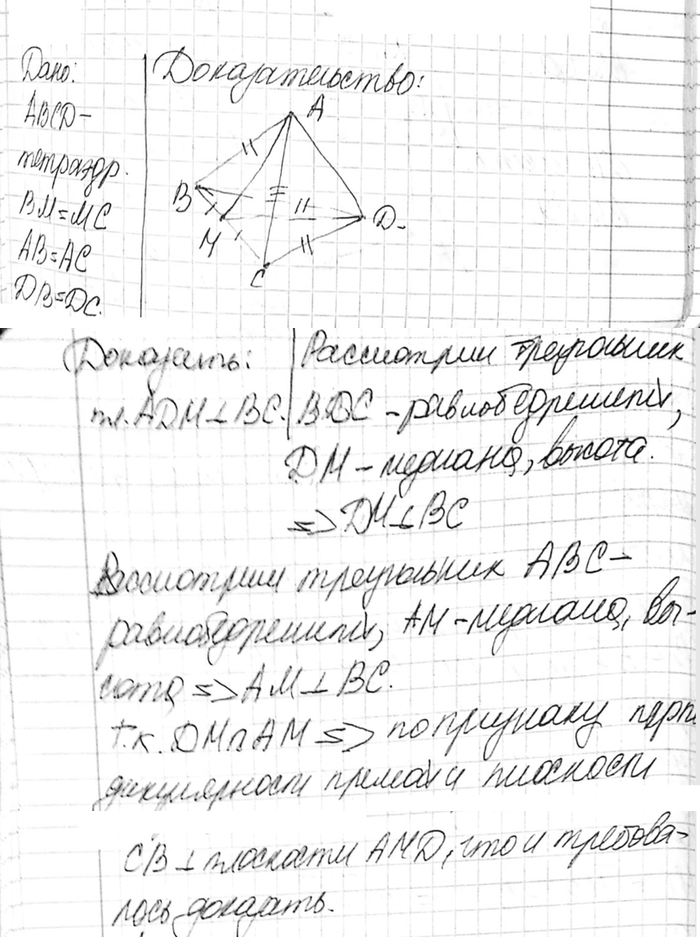 Дано:
ABCD –
тетраэдр.
BM = MC
AB = AC
DB = DC.
Доказательство:
A
B
M
C
D
Доказать:
пл. ADM ⊥ BC.
Рассмотрим треугольник
BDC – равнобедренный,
DM – медиана, высота.
=> DM ⊥ BC
Рассмотрим треугольник ABC –
равнобедренный, AM – медиана, вы-
сота => AM ⊥ BC.
т.к. DM ∩ AM => по признаку перпен
дикулярности прямой и плоскости
CB ⊥ плоскости AMD, что и требова-
лось доказать.